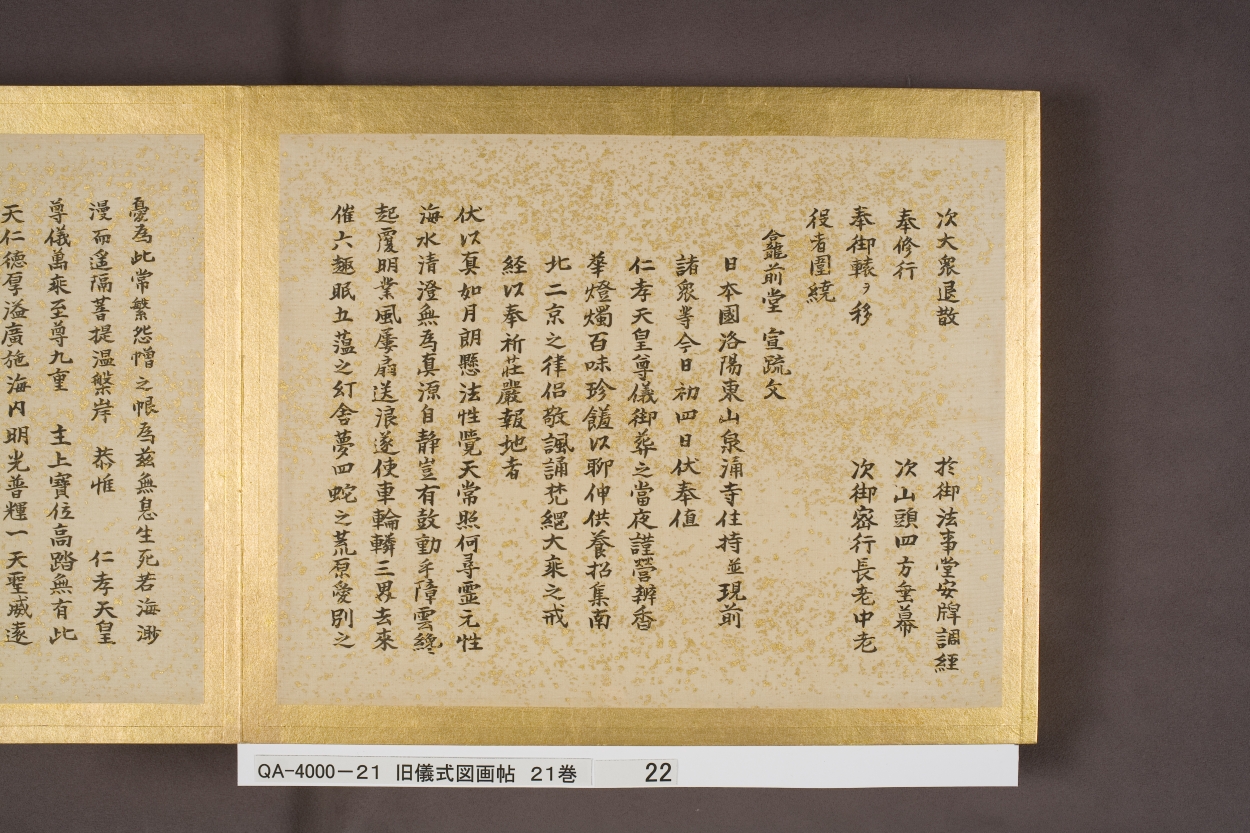 次大衆退散　於御法事堂安牌調經
奉修行　次山頭四方垂幕
奉御轅ヲ移　次御密行長老中老
役者圍繞
龕前堂 宣疏文
日夲國洛陽東山泉涌寺住持並現前
諸衆等今日初四日伏奉值
仁孝天皇尊儀御葬之當夜謹營辨香
華燈燭百味珍饈以聊伸供養招集南
北二京之律侶敬諷誦梵網大乘之戒
経以奉祈莊嚴報地者
伏以真如月朗懸法性覺天常照何尋霊元性
海水清澄無為真源自静豈有鼓動乎障雲纔
起覆明業風屡扇送浪遂使車輪轔三界去來
催六趣眠五薀之幻舍夢四蛇之荒原愛別之
憂為此常繁怨憎之恨為茲無息生死若海渺
漫而遥隔菩提温槃岸　恭惟　仁孝天皇
尊儀萬乘至尊九重　主上寶位高踏無有此
天仁德厚溢廣施海内明光普輝一天聖威遠
QA-4000－21 旧儀式図画帖 21巻 22